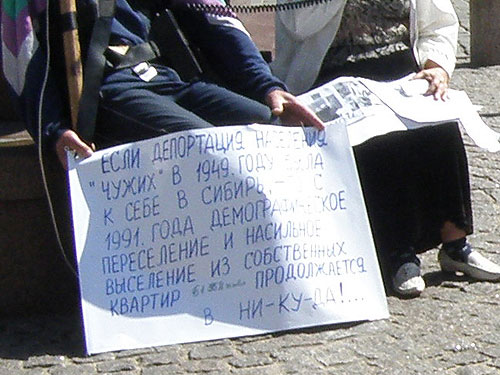 ЕСЛИ ДЕПОРТАЦИЯ НАСЕЛЕНИЯ
"ЧУЖИХ" В 1949. ГОДУ БЫЛА
К СЕБЕ В СИБИРЬ, С
1991. ГОДА ДЕМОГРАФИЧЕСКОЕ
ПЕРЕСЕЛЕНИЕ И НАСИЛЬНОЕ
ВЫСЕЛЕНИЕ ИЗ СОБСТВЕННЫХ
КВАРТИР ПРОДОЛЖАЕТСЯ
В НИ-КУ-ДА!...